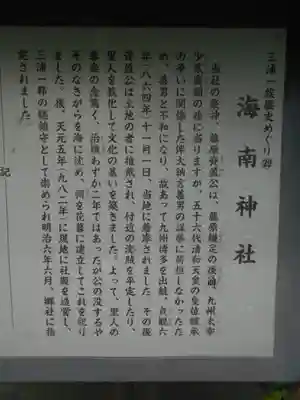 三浦一族歴史めぐり㉒
海南神社
当社の祭神、藤原資盈公は、藤原鎌足の後裔、九州太宰
少弐廣嗣の孫に当りますが、五十六代清和天皇の皇位継承
の争いに関係した伴大納言善男の謀挙に荷担しなかったた
め、善男と不和になり、故あって九州博多を出航、貞観六
年(八六四年)十一月一日、当地に着岸されました。その後
資盈公は土地の者に推戴され、付近の海賊を平定したり、
里人を教化して文化の基いを築きました。よって、里人の
尊崇の念篤く、治績わずか二年ではあったが公の没するや
そのなきがらを海に沈め、祠を花暮に建立してこれを祀り
ました。後、天元五年(九八二年)に現地に社殿を造営し、
三浦一郡の総鎮守として崇められ明治六年六月、郷社に指
定されました。
記